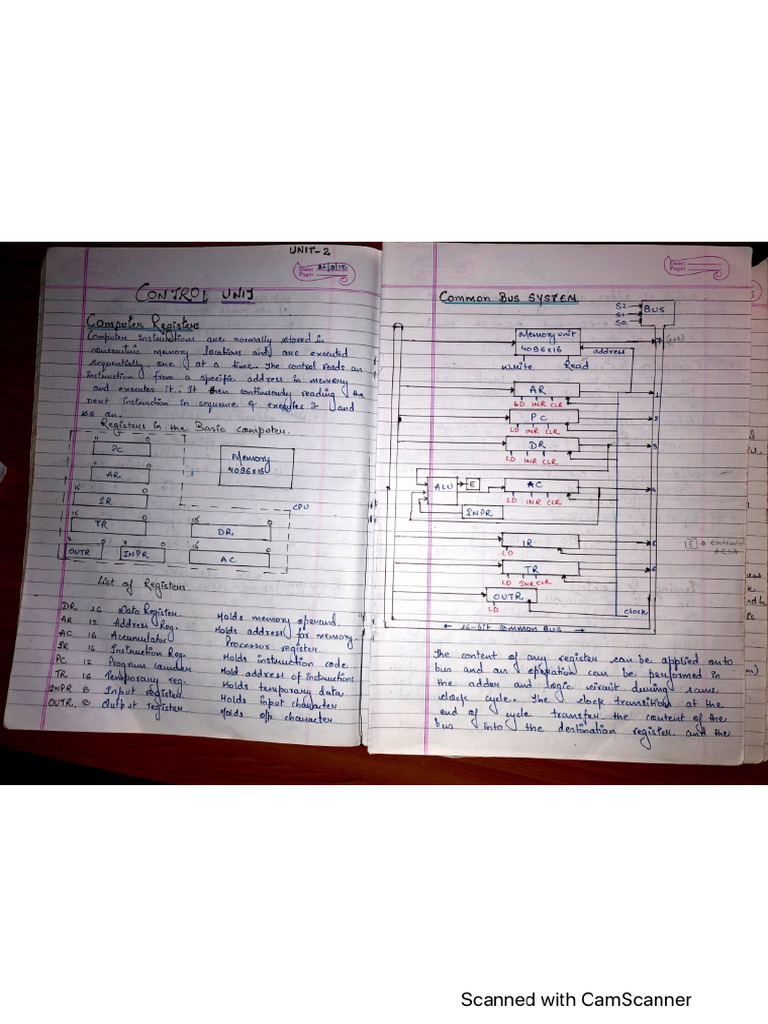 UNIT-2
Date:
Page:
CONTROL UNIT
Computer Registers
Computer instructions are normally stored in
consecutive memory locations and are executed
sequentially one at a time. The control reads an
instruction from a specific address in memory
and executes it. It then continuously reading the
next instruction in sequence & executes it and
so on.
Registers in the Basic computer.
11 0
PC
11 0
AR
15 0
IR
15 0
TR
OUTR
INPR
Memory
4096x16
CPU
15 0
DR
15 0
AC
List of Registers
DR 16 Data Register. Holds memory operand.
AR 12 Address Reg. Holds address for memory
AC 16 Accumulator Processor register.
IR 16 Instruction Reg. Holds instruction code.
PC 12 Program counter Hold address of instructions
TR 16 Temporary reg. Holds temporary data
INPR 8 Input register. Holds input character
OUTR. 8 Output register. Holds o/p character.
Date:
Page:
COMMON BUS SYSTEM
S2
S1
S0
BUS
Memory unit
4096x16
address
write Read
7
AR
LD INR CLR
1
PC
LD INR CLR
2
DR
LD INR CLR
3
ALU
E
AC
LD INR CLR
4
INPR
IR
LD
5
TR
LD INR CLR
6
OUTR
LD
clock
16-bit Common BUS
The content of any register can be applied onto
bus and an operation can be performed in
the adder and logic circuit during same
clock cycle. The clock transition at the
end of cycle transfer the content of the
bus into the destination register and the
Scanned with CamScanner